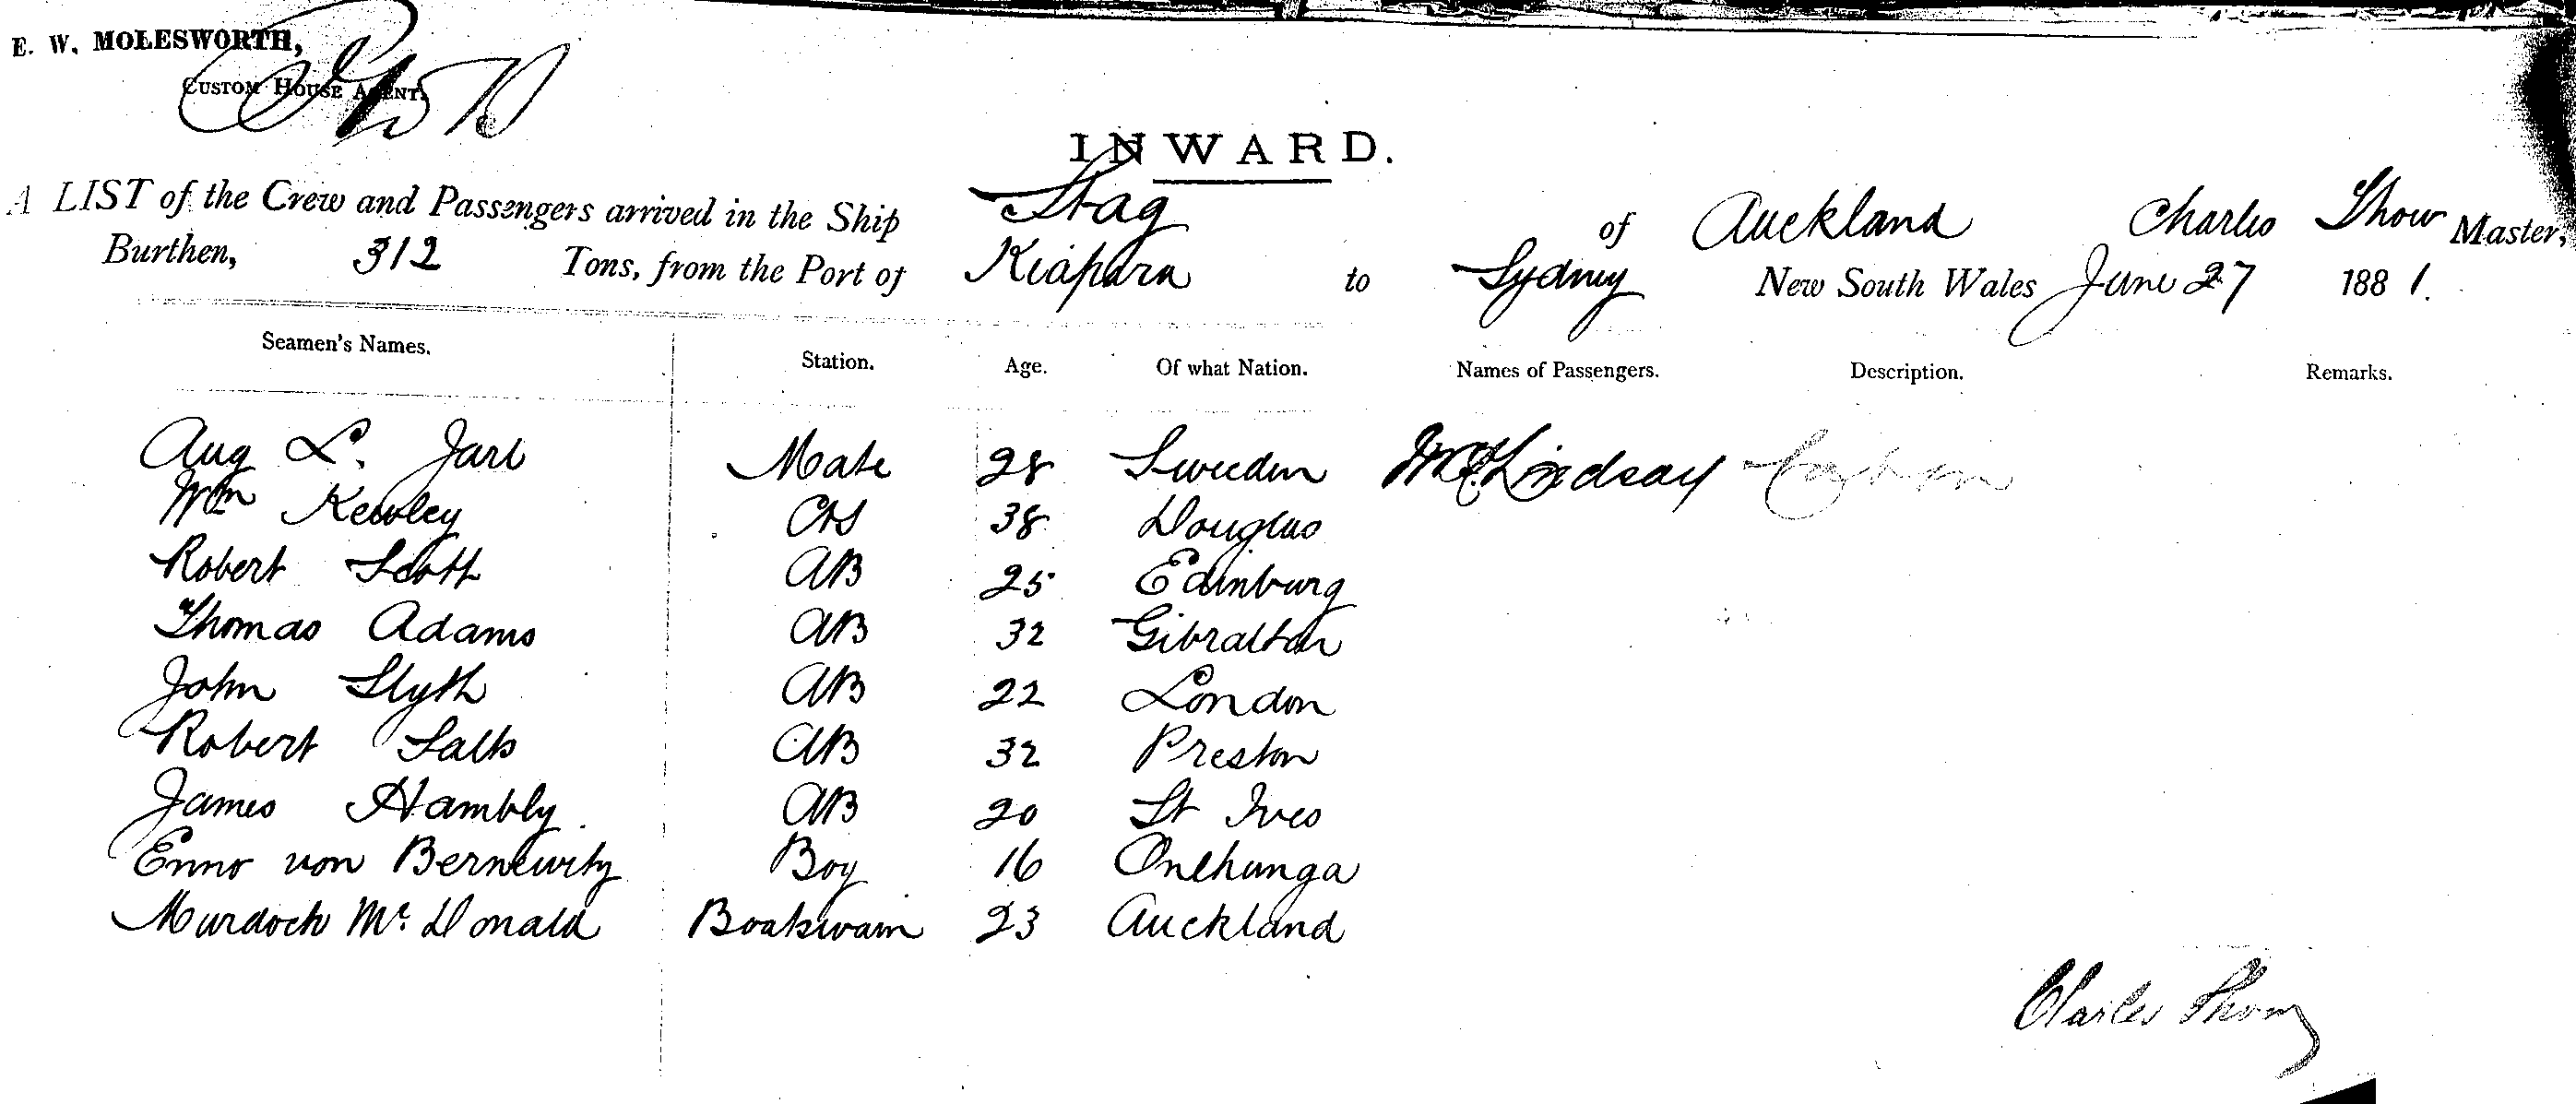 E. W. MOLESWORTH,
CUSTOM HOUSE AGENT.
INWARD.
A LIST of the Crew and Passengers arrived in the Ship Stag of Auckland Charles Thow Master,
Burthen, 312 Tons, from the Port of Kiapara to Sydney New South Wales June 27 1881.
Seamen's Names. Station. Age. Of what Nation. Names of Passengers. Description. Remarks.
Aug L. Jarl Mate 28 Sweden Lindsay
Wm Kewley 38 Douglas
Robert Scott AB 25 Edinburg
Thomas Adams AB 32 Gibraltar
John Slyth AB 22 London
Robert Salts AB 32 Preston
James Hambly AB 20 St Ives
Enno von Bernewitz Boy 16 Onehunga
Murdoch Mc Donald Boatswain 23 Auckland
Charles Thow